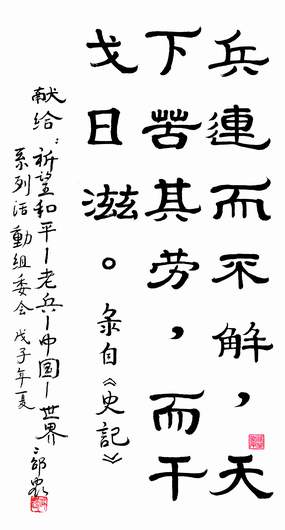 兵連而不解，天
下苦其劳，而干
戈日滋。录自《史記》
献给：祈望和平—老兵—中国—世界
系列活動組委会 戊子年夏